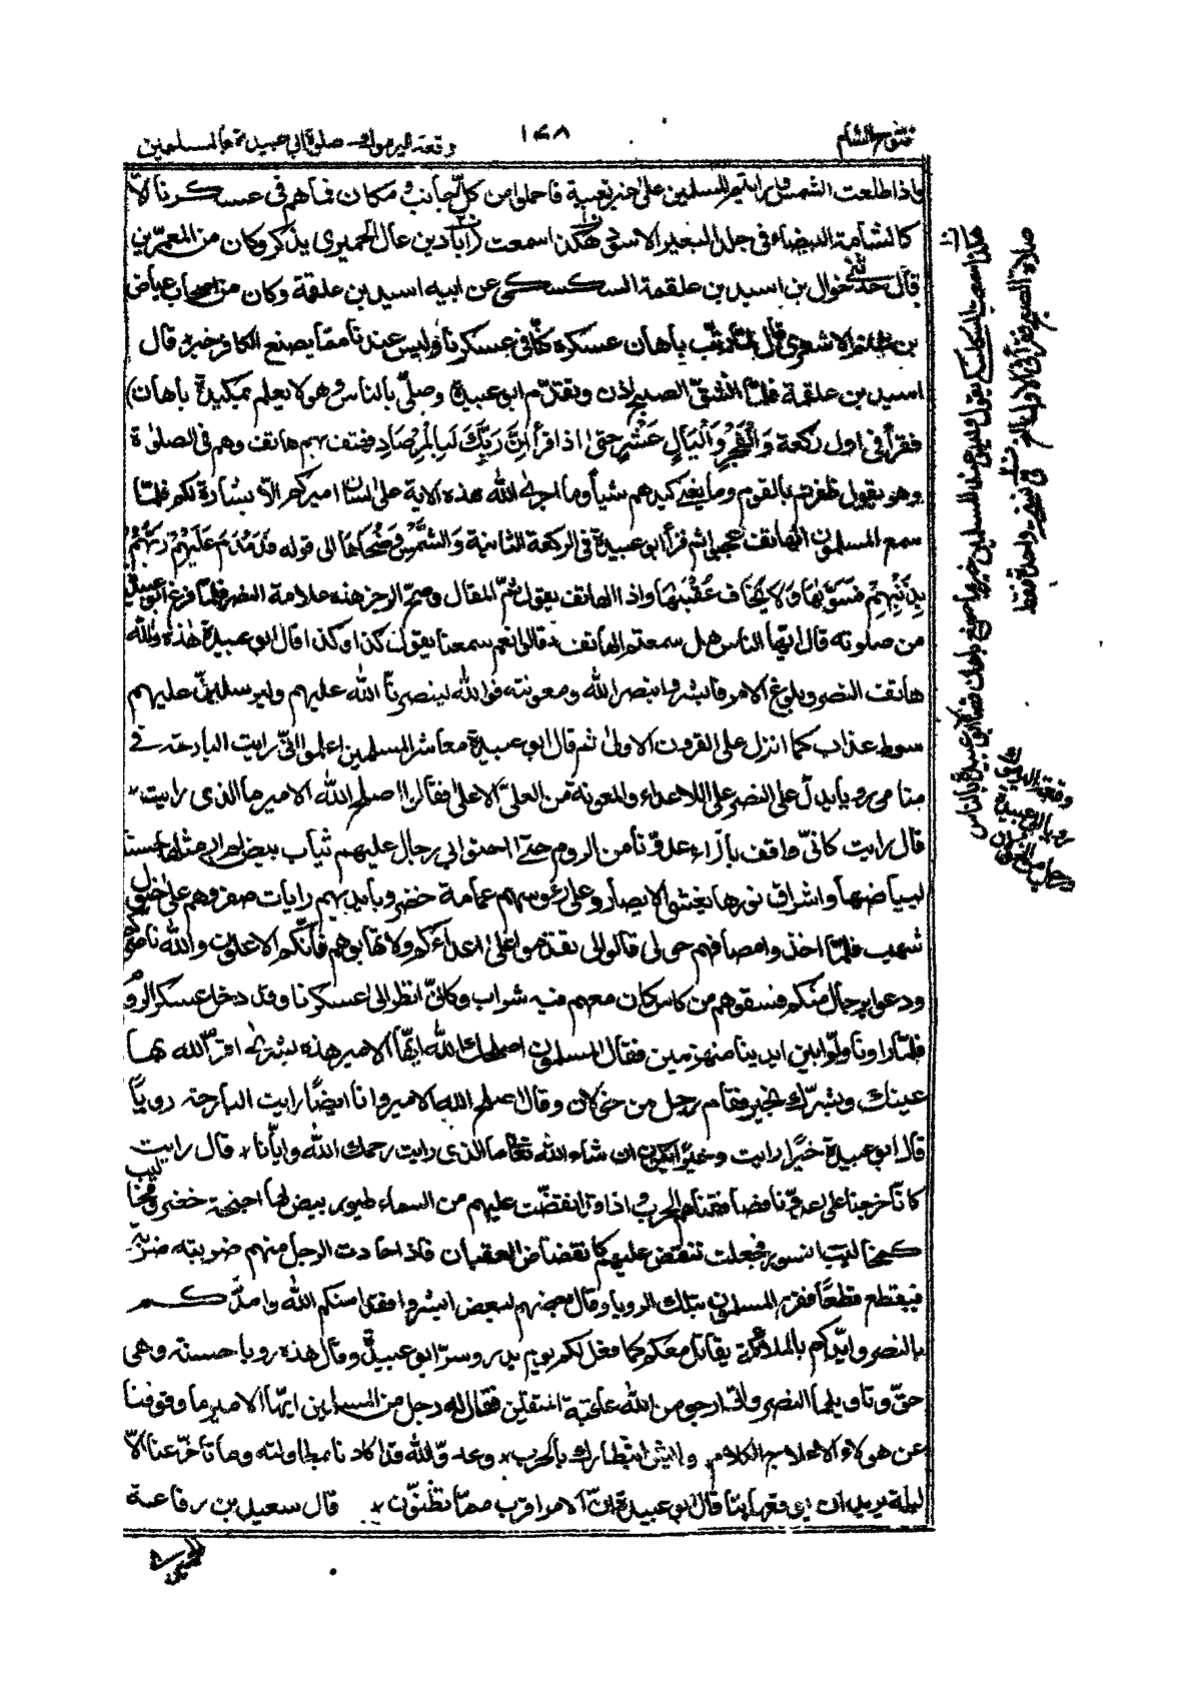 فتوح الشام ١٤٨ وقعة اليرموك صلوة ابي عبيدة مع المسلمين
واذا طلعت الشمس على احملوا من كل جانب ومكان فما هم في عسكرنا الا
كالشامة البيضاء في جلد البعير الاسود هكذا سمعت الحميري يذكر وكان من المعمرين
قال حدثني خوال بن اسيد بن علقمة السكسكي عن ابيه اسيد بن علقمة وكان من اصحاب عياض
بن الاشعري قال باهان عسكره كنا في عسكرنا وليس عندنا مما يصنع الكافر خبر قال
اسيد بن علقمة فلما انشق الصبح اذن وتقدم ابو عبيدة وصلى بالناس وهو لا يعلم بمكيدة باهان
فقرأ في اول ركعة وَالْفَجْرِ وَلَيَالٍ عَشْرٍ حتى اذا قرأ اِنَّ رَبَّكَ لَبِالْمِرْصَادِ فهتف بهم هاتف وهم في الصلوة
وهو يقول ظفرتم بالقوم وما يغني كيدهم شيأ وما اجرى الله هذه الاية على لسان اميركم الا بشارة لكم فلما
سمع المسلمون الهاتف عجبوا ثم قرأ ابو عبيدة في الركعة الثانية وَالشَّمْسِ وَضُحٰهَا الى قوله فَدَمْدَمَ عَلَيْهِمْ رَبُّهُمْ
بِذَنْبِهِمْ فَسَوّٰىهَا وَلَا يَخَافُ عُقْبٰهَا واذا الهاتف يقول تم المقال وصح الزجر هذه علامة النصر فلما فرغ ابو عبيدة
من صلوته قال ايها الناس هل سمعتم الهاتف قالوا نعم سمعنا يقول كذا وكذا قال ابو عبيدة هذا والله
هاتف النصر وبلوغ الامر فابشروا بنصر الله ومعونته فوالله لينصرنا الله عليهم وليرسلن عليهم
سوط عذاب كما انزل على القرون الاولى ثم قال ابو عبيدة معاشر المسلمين اعلموا اني رايت البارحة في
منامي رويا يدل على النصر على الاعداء والمعونة من العلي الاعلى فقالوا اصلح الله الامير ما الذي رايت
قال رايت كاني واقف بازاء عدونا من الروم حتى احتف بي رجال عليهم ثياب بيض لم ار مثلها حسنا
لبياضها واشراق نورها يغشى الابصار وعلى رؤسهم عمامة خضر وبايديهم رايات صفر وهم على خيل
شهب فلما اخذوا مصافهم حولي قالوا لي تقدموا على اعداءكم ولا تهابوهم فانكم الاعلون والله ناصركم
ودعوا برجال منكم فسقوهم من كاس كان معهم فيه شراب وكاني انظر الى عسكرنا وقد دخل عسكر الروم
فلما راونا ولوا بين ايدينا منهزمين فقال المسلمون اصلحك الله ايها الامير هذه بشرى اقر الله بها
عينك وبشرك بخير فقام رجل من وقال اصلح الله الامير وانا ايضا رايت البارحة رويا
قال ابو عبيدة خيرا رايت وخيرا يكون ان شاء الله تعالى ما الذي رايت رحمك الله وايانا قال رايت
كانا خرجنا على عدونا فصاففناهم الحرب واذا قد انقضت عليهم من السماء طيور بيض لها اجنحة خضر ومخاليب
كمخاليب النسور فجعلت تنقض عليهم كانقضاض العقبان فاذا حاذت الرجل منهم ضربته ضربة
فيقطع قطعا ففرح المسلمون بتلك الرويا وقال بعضهم لبعض ابشروا فقد امنكم الله وامدكم
بالنصر وايدكم بالملائكة يقاتل معكم كما فعل لكم يوم بدر وسر ابو عبيدة وقال هذه رويا حسنة وهي
حق وتاويلها النصر واني ارجو من الله عاقبة المتقين فقال له رجل من المسلمين ايها الامير ما وقوفنا
عن هولاء الاعلاج الكلاب وايش انتظارك بالحرب وعدو الله قد كادنا بمطاولته وما تأخر عنا الا
ليلة يريد ان يوقعها بنا قال ابو عبيدة ان الامر اقرب مما تظنون قال سعيد بن رفاعة
الحميري
صلاة الصبح فقرأ في الاولى